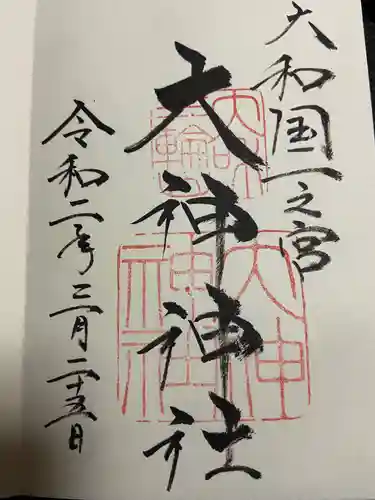 大和国一之宮
三輪明神
大神神社
大神神社
令和二年三月二十五日